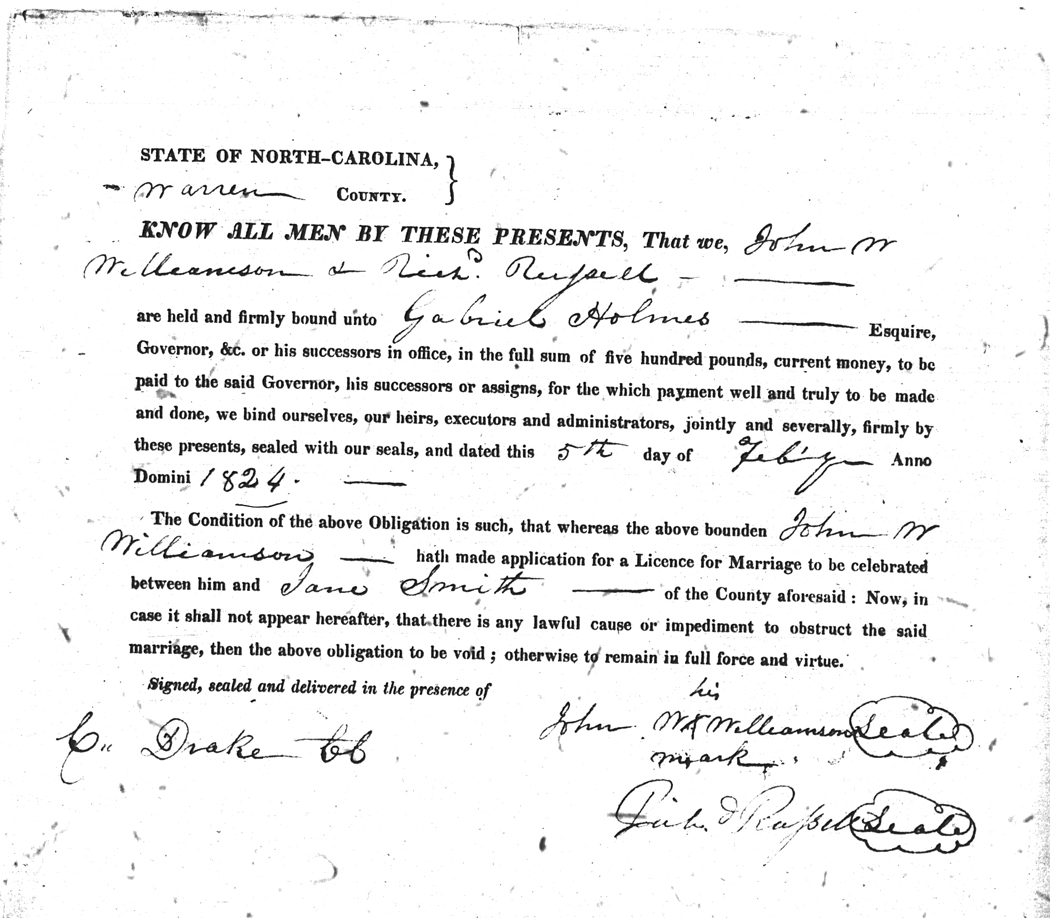 STATE OF NORTH-CAROLINA, }
Warren COUNTY.
KNOW ALL MEN BY THESE PRESENTS, That we, John W
Williamson & Richd. Russell
are held and firmly bound unto Gabriel Holmes Esquire,
Governor, &c. or his successors in office, in the full sum of five hundred pounds, current money, to be
paid to the said Governor, his successors or assigns, for the which payment well and truly to be made
and done, we bind ourselves, our heirs, executors and administrators, jointly and severally, firmly by
these presents, sealed with our seals, and dated this 5th day of Feb'y Anno
Domini 1824.
The Condition of the above Obligation is such, that whereas the above bounden John W
Williamson hath made application for a Licence for Marriage to be celebrated
between him and Jane Smith of the County aforesaid : Now, in
case it shall not appear hereafter, that there is any lawful cause or impediment to obstruct the said
marriage, then the above obligation to be void ; otherwise to remain in full force and virtue.
Signed, sealed and delivered in the presence of
his
John W X Williamson Seal
mark
C. Drake CC
Richd Russell Seal